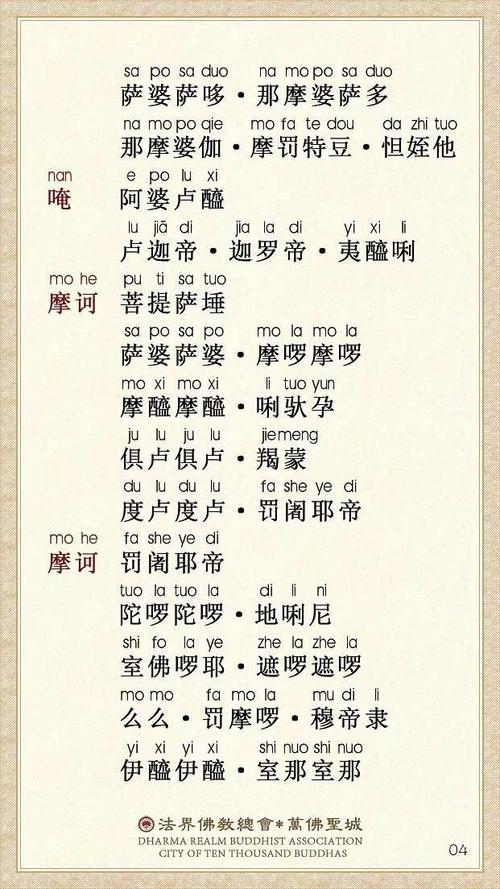 sa po sa duo na mo po sa duo
萨婆萨哆·那摩婆萨多
na mo po qie mo fa te dou da zhi tuo
那摩婆伽·摩罚特豆·怛姪他
nan e po lu xi
唵 阿婆卢醯
lu jiā di jia la di yi xi li
卢迦帝·迦罗帝·夷醯唎
mo he pu ti sa tuo
摩诃 菩提萨埵
sa po sa po mo la mo la
萨婆萨婆·摩啰摩啰
mo xi mo xi li tuo yun
摩醯摩醯·唎驮孕
ju lu ju lu jie meng
俱卢俱卢·羯蒙
du lu du lu fa she ye di
度卢度卢·罚阇耶帝
mo he fa she ye di
摩诃 罚阇耶帝
tuo la tuo la di li ni
陀啰陀啰·地唎尼
shi fo la ye zhe la zhe la
室佛啰耶·遮啰遮啰
mo mo fa mo la mu di li
么么·罚摩啰·穆帝隶
yi xi yi xi shi nuo shi nuo
伊醯伊醯·室那室那
法界佛教總會*萬佛聖城
DHARMA REALM BUDDHIST ASSOCIATION
CITY OF TEN THOUSAND BUDDHAS
04